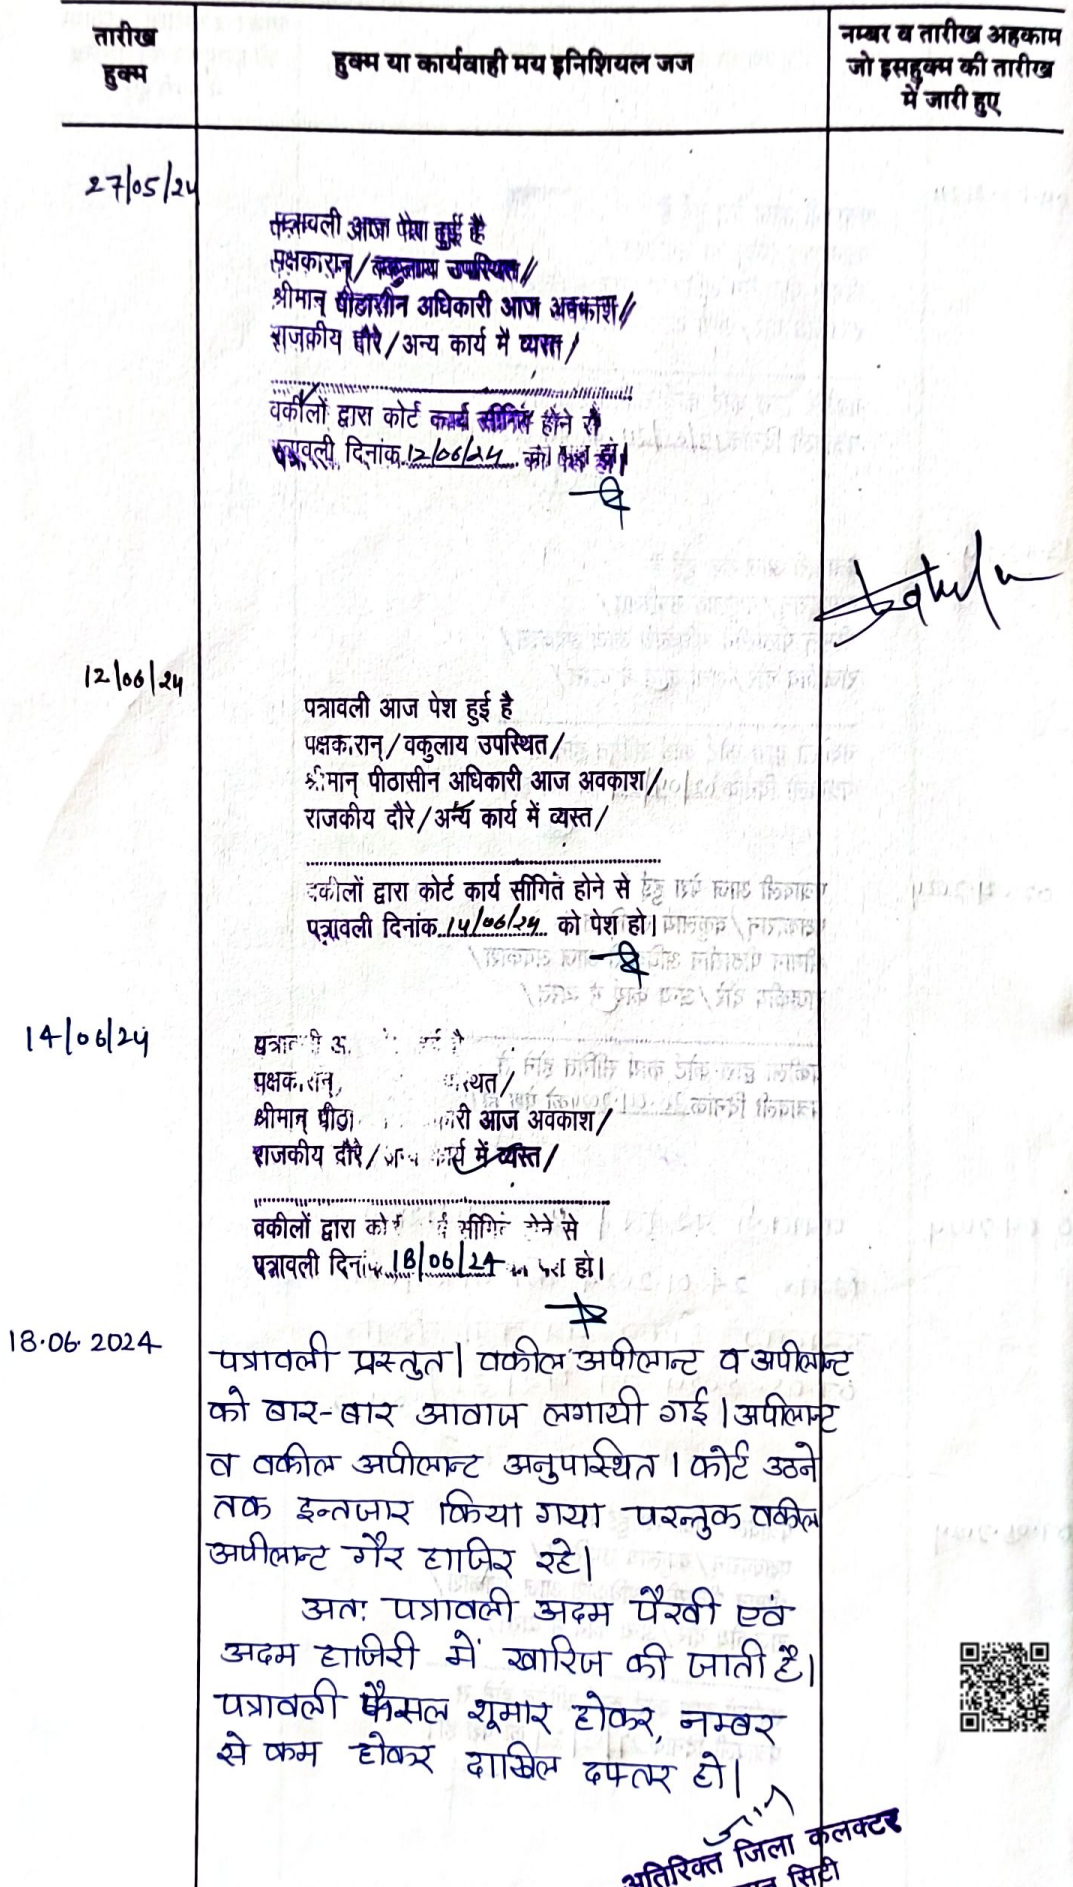 तारीख
हुक्म
हुक्म या कार्यवाही मय इनिशियल जज
नम्बर व तारीख अहकाम
जो इसहुक्म की तारीख
में जारी हुए
27/05/24
पत्रावली आज पेश हुई है
पक्षकारान्/वकुलाय उपस्थित/
श्रीमान् पीठासीन अधिकारी आज अवकाश/
राजकीय दौरे/अन्य कार्य में व्यस्त/
वकीलों द्वारा कोर्ट कार्य सीगित होने से
पत्रावली दिनांक 12/06/24 को पेश हो।
12/06/24
पत्रावली आज पेश हुई है
पक्षकारान्/वकुलाय उपस्थित/
श्रीमान् पीठासीन अधिकारी आज अवकाश/
राजकीय दौरे/अन्य कार्य में व्यस्त/
वकीलों द्वारा कोर्ट कार्य सीगित होने से
पत्रावली दिनांक 14/06/24 को पेश हो।
14/06/24
श्रीमान् आज अवकाश/
राजकीय दौरे/ में व्यस्त/
वकीलों द्वारा होने से
पत्रावली दिनांक 18/06/24 हो।
18.06.2024
पत्रावली प्रस्तुत। वकील अपीलान्ट व अपीलान्ट
को बार-बार आवाज लगायी गई। अपीलान्ट
व वकील अपीलान्ट अनुपास्थित। कोर्ट उठने
तक इन्तजार किया गया परन्तुक वकील
अपीलान्ट गैर हाजिर रहे।
अतः पत्रावली अदम पैरवी एवं
अदम हाजिरी में खारिज की जाती है।
पत्रावली फैसल शूमार होकर, नम्बर
से कम होकर दाखिल दफ्तर हो।
अतिरिक्त जिला कलक्टर
सिटी